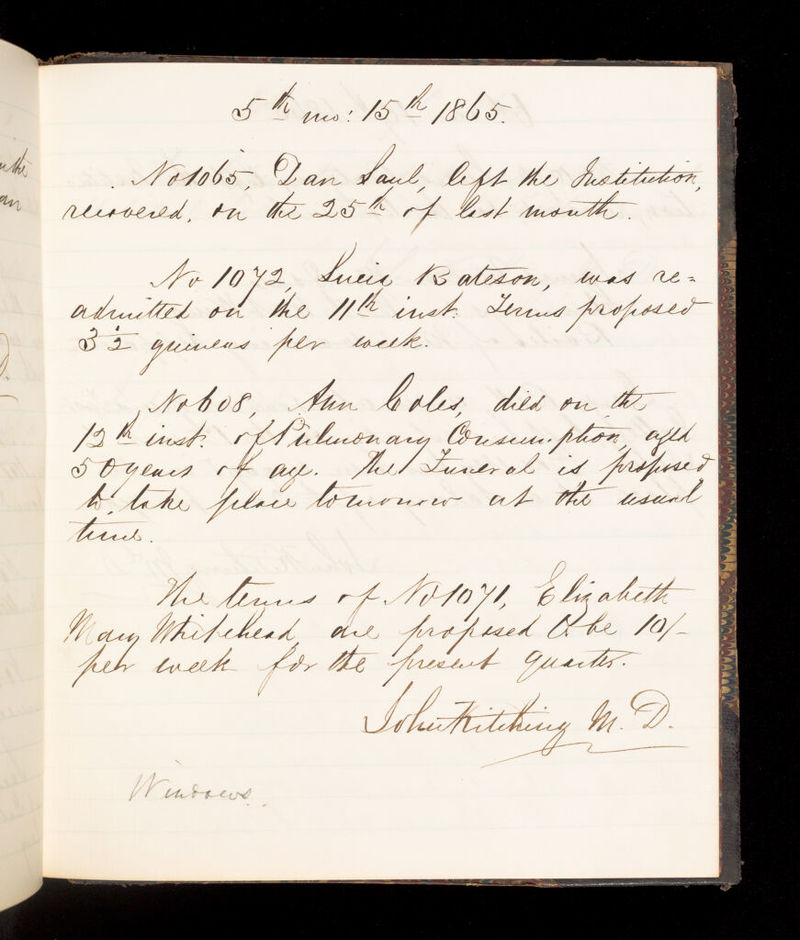 5th mo: 15th 1865.
No 1065, Dan Saul, left the Institution,
recovered, on the 25th of last month.
No 1072, Lucia Bateson, was re-
admitted on the 11th inst. Terms proposed
3½ guineas per week.
No 608, Ann Coles, died on the
12th inst. of Pulmonary Consumption, aged
50 years of age. The Funeral is proposed
to take place tomorrow at the usual
time.
The terms of No 1071, Elizabeth
Mary Whitehead are proposed to be 10/-
per week for the present quarter.
John Kitching M.D.
Windows.
n the
an
D.